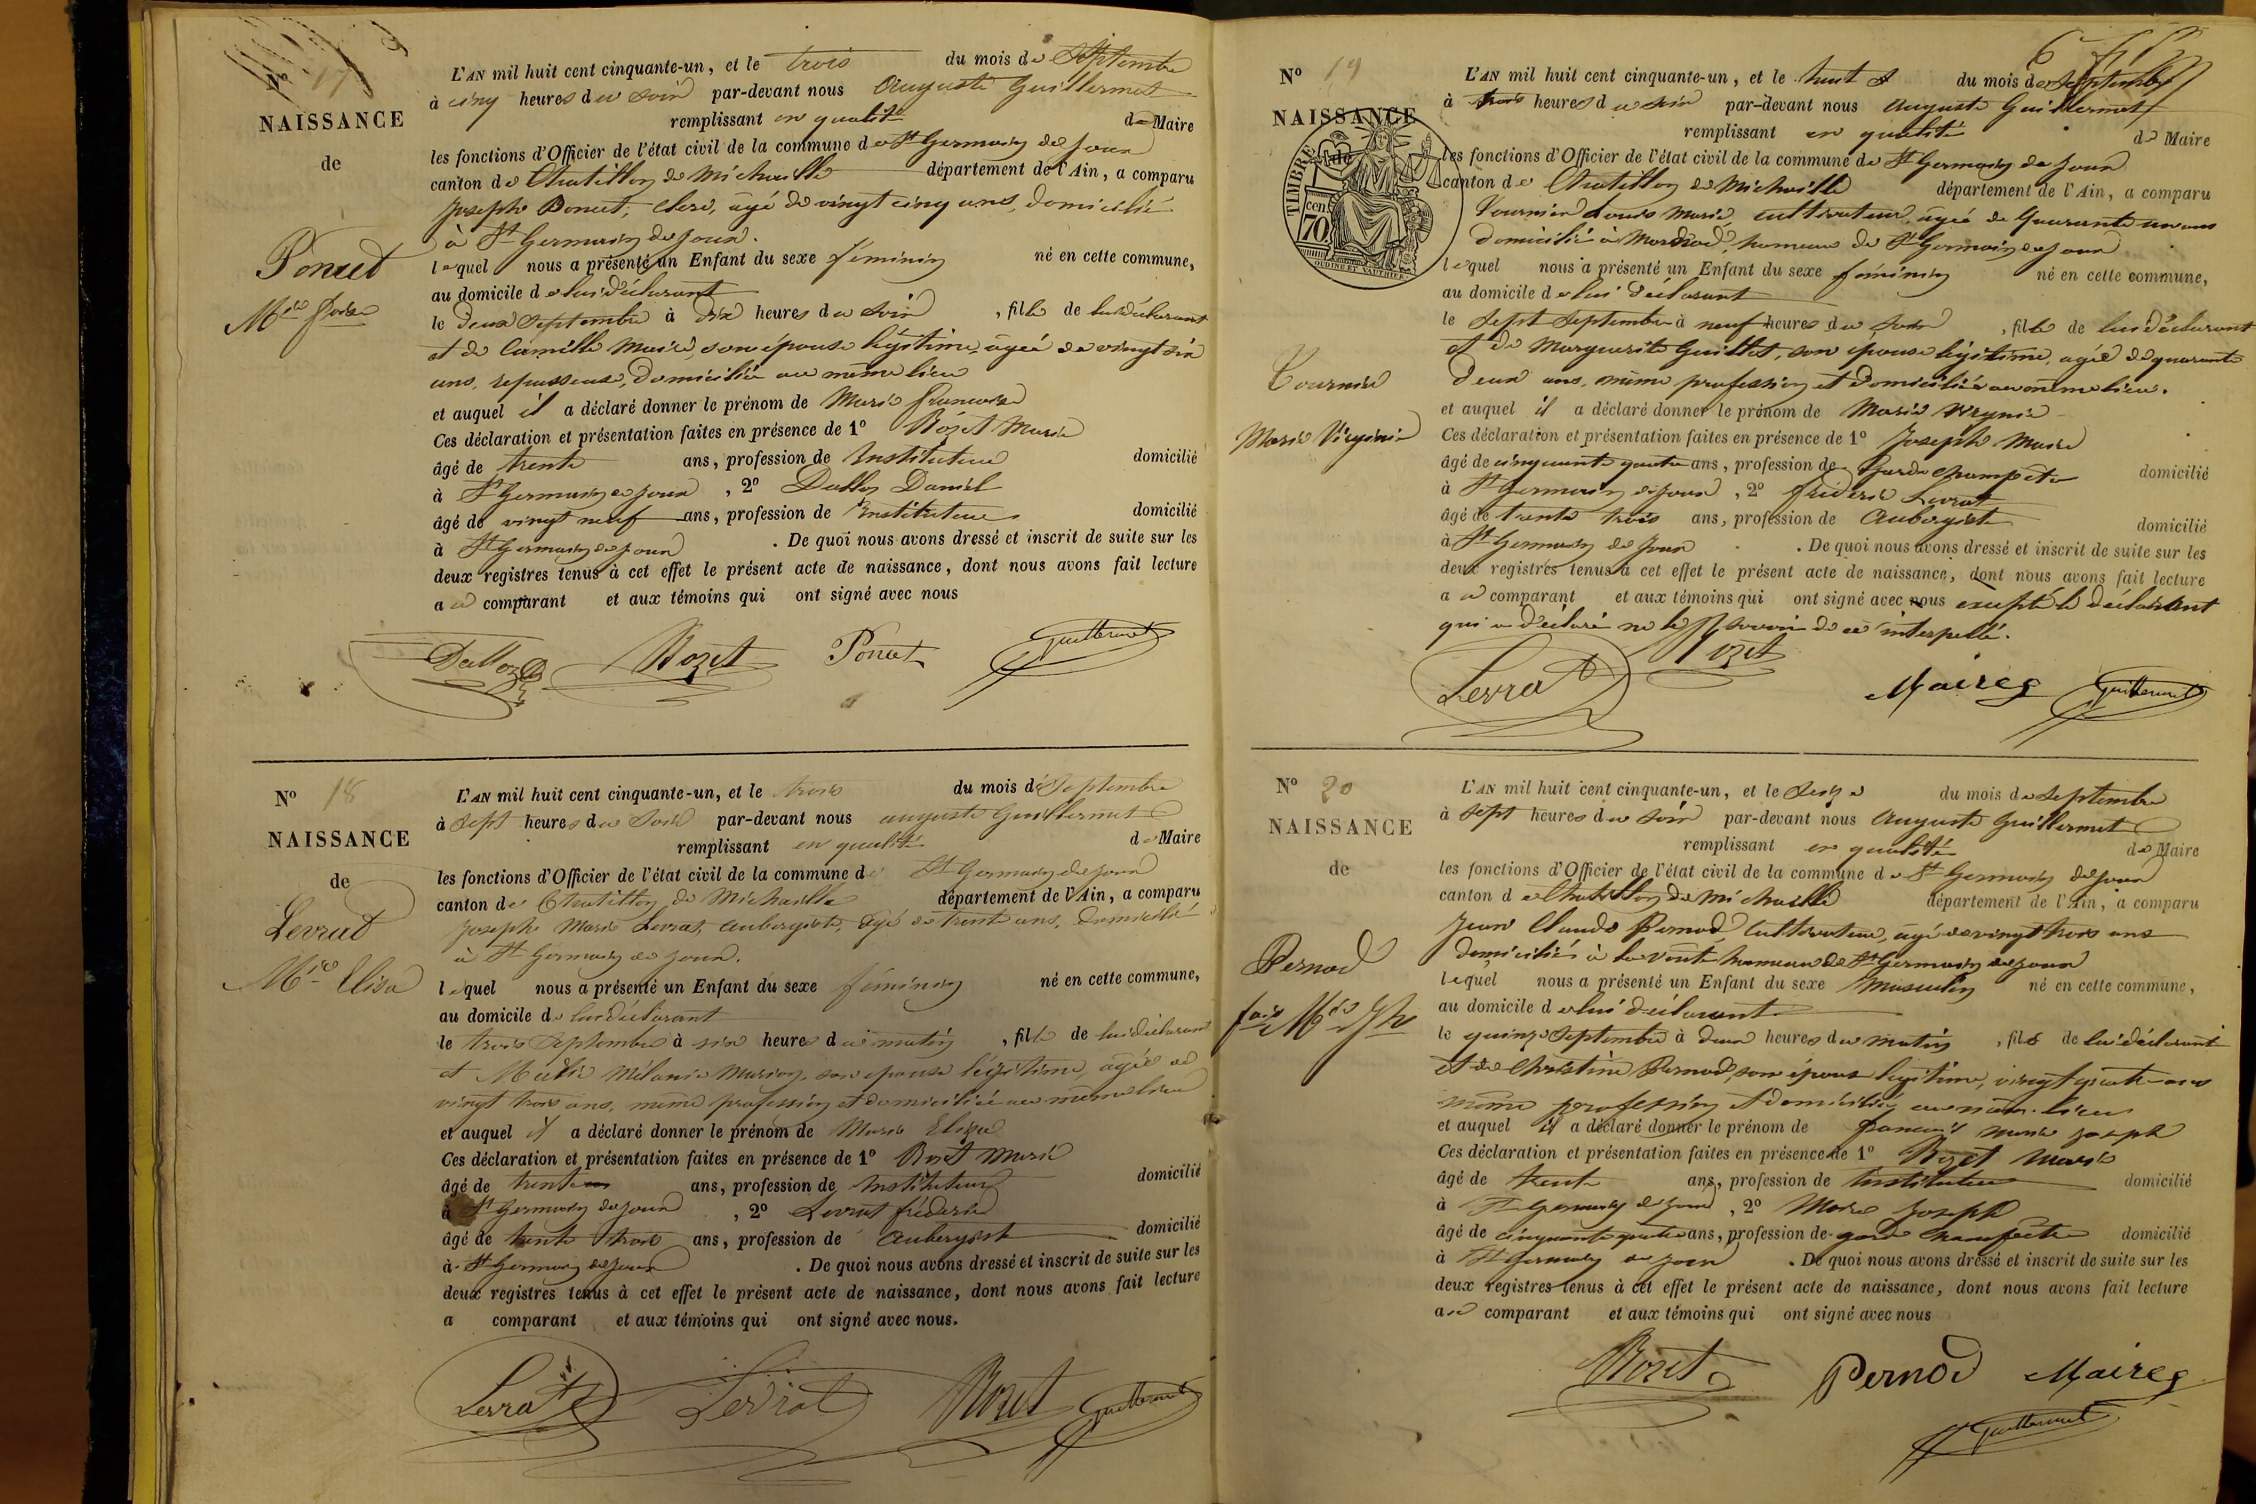 N° 17
NAISSANCE
de
Poncet
Mie fçoise
L'AN mil huit cent cinquante-un, et le trois du mois de Septembre
à cinq heures du soir par-devant nous Auguste Guillermet
remplissant en qualité de Maire
les fonctions d'Officier de l'état civil de la commune de St Germain de Joux
canton de Chatillon de Michaille département de l'Ain, a comparu
Joseph Poncet, clerc, âgé de vingt cinq ans, domicilié
à St Germain de Joux.
lequel nous a présenté un Enfant du sexe féminin né en cette commune,
au domicile de lui déclarant
le deux Septembre à dix heures du soir, fille de lui déclarant
et de Camille Maire, son épouse légitime, âgée de vingt six
ans, repasseuse, domiciliée au même lieu
et auquel il a déclaré donner le prénom de Marie françoise
Ces déclaration et présentation faites en présence de 1° Rozet Marie
âgé de trente ans, profession de Instituteur domicilié
à St Germain de Joux, 2° Dalloz Daniel
âgé de vingt neuf ans, profession de Instituteur domicilié
à St Germain de Joux. De quoi nous avons dressé et inscrit de suite sur les
deux registres tenus à cet effet le présent acte de naissance, dont nous avons fait lecture
a u comparant et aux témoins qui ont signé avec nous
Dalloz Rozet Poncet Guillermet
N° 18
NAISSANCE
de
Levrat
Mie Elisa
L'AN mil huit cent cinquante-un, et le trois du mois de Septembre
à sept heures du soir par-devant nous auguste Guillermet
remplissant en qualité de Maire
les fonctions d'Officier de l'état civil de la commune de St Germain de Joux
canton de Chatillon de Michaille département de l'Ain, a comparu
Joseph Marie Levrat, aubergiste, âgé de trente ans, domicilié
à St Germain de Joux.
lequel nous a présenté un Enfant du sexe féminin né en cette commune,
au domicile de lui déclarant
le trois Septembre à six heures du matin, fille de lui déclarant
et Mélanie Marion, son épouse légitime, âgée de
vingt trois ans, même profession et domiciliée au même lieu
et auquel il a déclaré donner le prénom de Marie Elisa
Ces déclaration et présentation faites en présence de 1° Rozet Marie
âgé de trente ans, profession de Instituteur domicilié
à St Germain de Joux, 2° Levrat fréderic
âgé de trente trois ans, profession de Aubergiste domicilié
à St Germain de Joux. De quoi nous avons dressé et inscrit de suite sur les
deux registres tenus à cet effet le présent acte de naissance, dont nous avons fait lecture
a comparant et aux témoins qui ont signé avec nous.
Levrat Levrat Rozet Guillermet
N° 19
NAISSANCE
de
TIMBRE
cen. 70
OUDINÉ ET VAUTHIER
Tournier
Marie Virginie
L'AN mil huit cent cinquante-un, et le huit du mois de Septembre
à trois heures du soir par-devant nous Auguste Guillermet
remplissant en qualité de Maire
les fonctions d'Officier de l'état civil de la commune de St Germain de Joux
canton de Chatillon de Michaille département de l'Ain, a comparu
Tournier Louis Marie, cultivateur, âgé de Quarante un ans
domicilié à hameau de St Germain de Joux
lequel nous a présenté un Enfant du sexe féminin né en cette commune,
au domicile de lui déclarant
le Sept Septembre à neuf heures du soir, fille de lui déclarant
et de Marguerite Guillet, son épouse légitime, agée de quarante
deux ans, même profession et domiciliée au même lieu.
et auquel il a déclaré donner le prénom de Marie
Ces déclaration et présentation faites en présence de 1° Joseph Maire
âgé de cinquante quatre ans, profession de Garde champêtre domicilié
à St Germain de Joux, 2° fréderic Levrat
âgé de trente trois ans, profession de Aubergiste domicilié
à St Germain de Joux. De quoi nous avons dressé et inscrit de suite sur les
deux registres tenus à cet effet le présent acte de naissance, dont nous avons fait lecture
a u comparant et aux témoins qui ont signé avec nous excepté le déclarant
qui a déclaré ne le savoir de ce interpellé.
Levrat Rozet Maire Guillermet
N° 20
NAISSANCE
de
Pernod
fois Mie Jh
L'AN mil huit cent cinquante-un, et le Seize du mois de Septembre
à sept heures du soir par-devant nous Auguste Guillermet
remplissant en qualité de Maire
les fonctions d'Officier de l'état civil de la commune de St Germain de Joux
canton de Chatillon de Michaille département de l'Ain, a comparu
Jean Claude Pernod, Cultivateur, âgé de vingt trois ans
domicilié à la voute hameau de St Germain de Joux
lequel nous a présenté un Enfant du sexe Masculin né en cette commune,
au domicile de lui déclarant
le quinze Septembre à deux heures du matin, fils de lui déclarant
et de Christine Pernod, son épouse légitime, vingt quatre ans
même profession et domiciliée au même lieu
et auquel il a déclaré donner le prénom de françois marie joseph
Ces déclaration et présentation faites en présence de 1° Rozet Marie
âgé de trente ans, profession de Instituteur domicilié
à St Germain de Joux, 2° Maire Joseph
âgé de cinquante quatre ans, profession de garde champêtre domicilié
à St Germain de Joux. De quoi nous avons dressé et inscrit de suite sur les
deux registres tenus à cet effet le présent acte de naissance, dont nous avons fait lecture
a u comparant et aux témoins qui ont signé avec nous
Rozet Pernod Maire
Guillermet